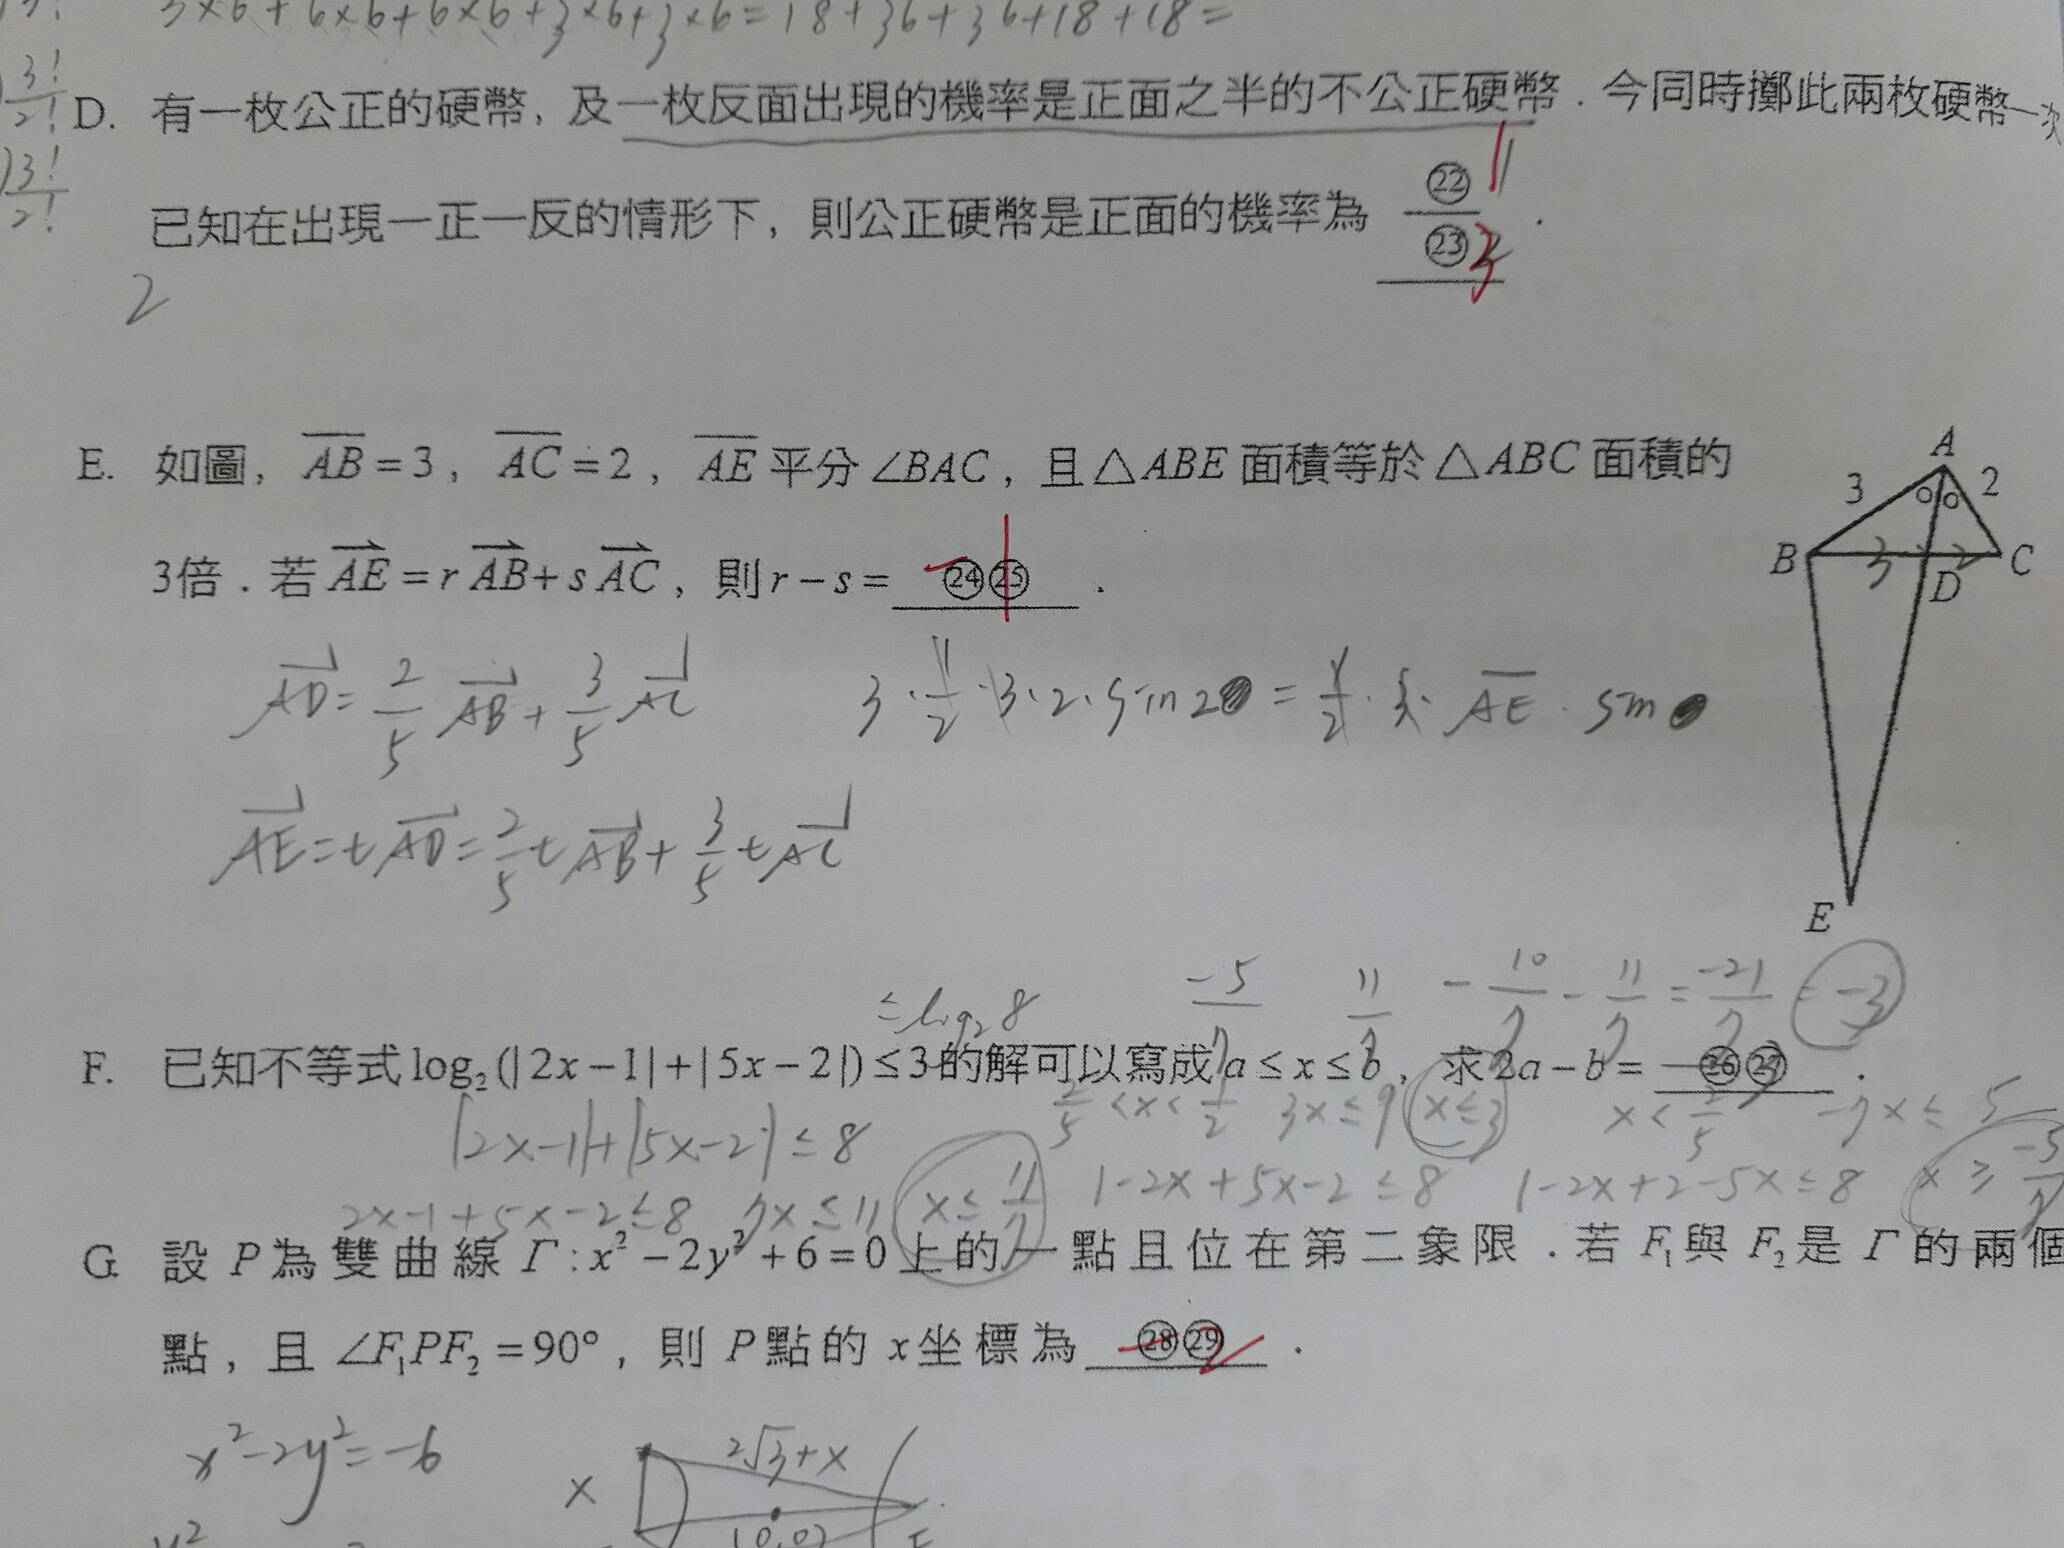 3×6+6×6+6×6+3×6+3×6=18+36+36+18+18=
3!
2!
D. 有一枚公正的硬幣，及一枚反面出現的機率是正面之半的不公正硬幣．今同時擲此兩枚硬幣一次
3!
2!
已知在出現一正一反的情形下，則公正硬幣是正面的機率為 ㉒/㉓ ．
1
3
2
E. 如圖，AB=3，AC=2，AE平分∠BAC，且△ABE面積等於△ABC面積的
3倍．若AE=rAB+sAC，則r-s= ㉔㉕ ．
A
3
2
B
3
2
C
D
E
AD=2/5 AB+3/5 AC
3·1/2·3·2·sin2●=1/2·3·AE·sin●
AE=tAD=2/5 tAB+3/5 tAC
≤log₂8
-5/7
11/7
-10/7-11/7=-21/7=-3
F. 已知不等式log₂(|2x-1|+|5x-2|)≤3的解可以寫成a≤x≤b，求2a-b= ㉖㉗ ．
|2x-1|+|5x-2|≤8
2/5<x<1/2 3x≤9 x≤3
x<2/5 -7x≤5
2x-1+5x-2≤8 7x≤11 x≤11/7
1-2x+5x-2≤8
1-2x+2-5x≤8 x≥-5/7
G. 設P為雙曲線Γ:x²-2y²+6=0上的一點且位在第二象限．若F₁與F₂是Γ的兩個
點，且∠F₁PF₂=90°，則P點的x坐標為 ㉘㉙ ．
-
2
x²-2y²=-6
x
2√3+x
(0,0)
F